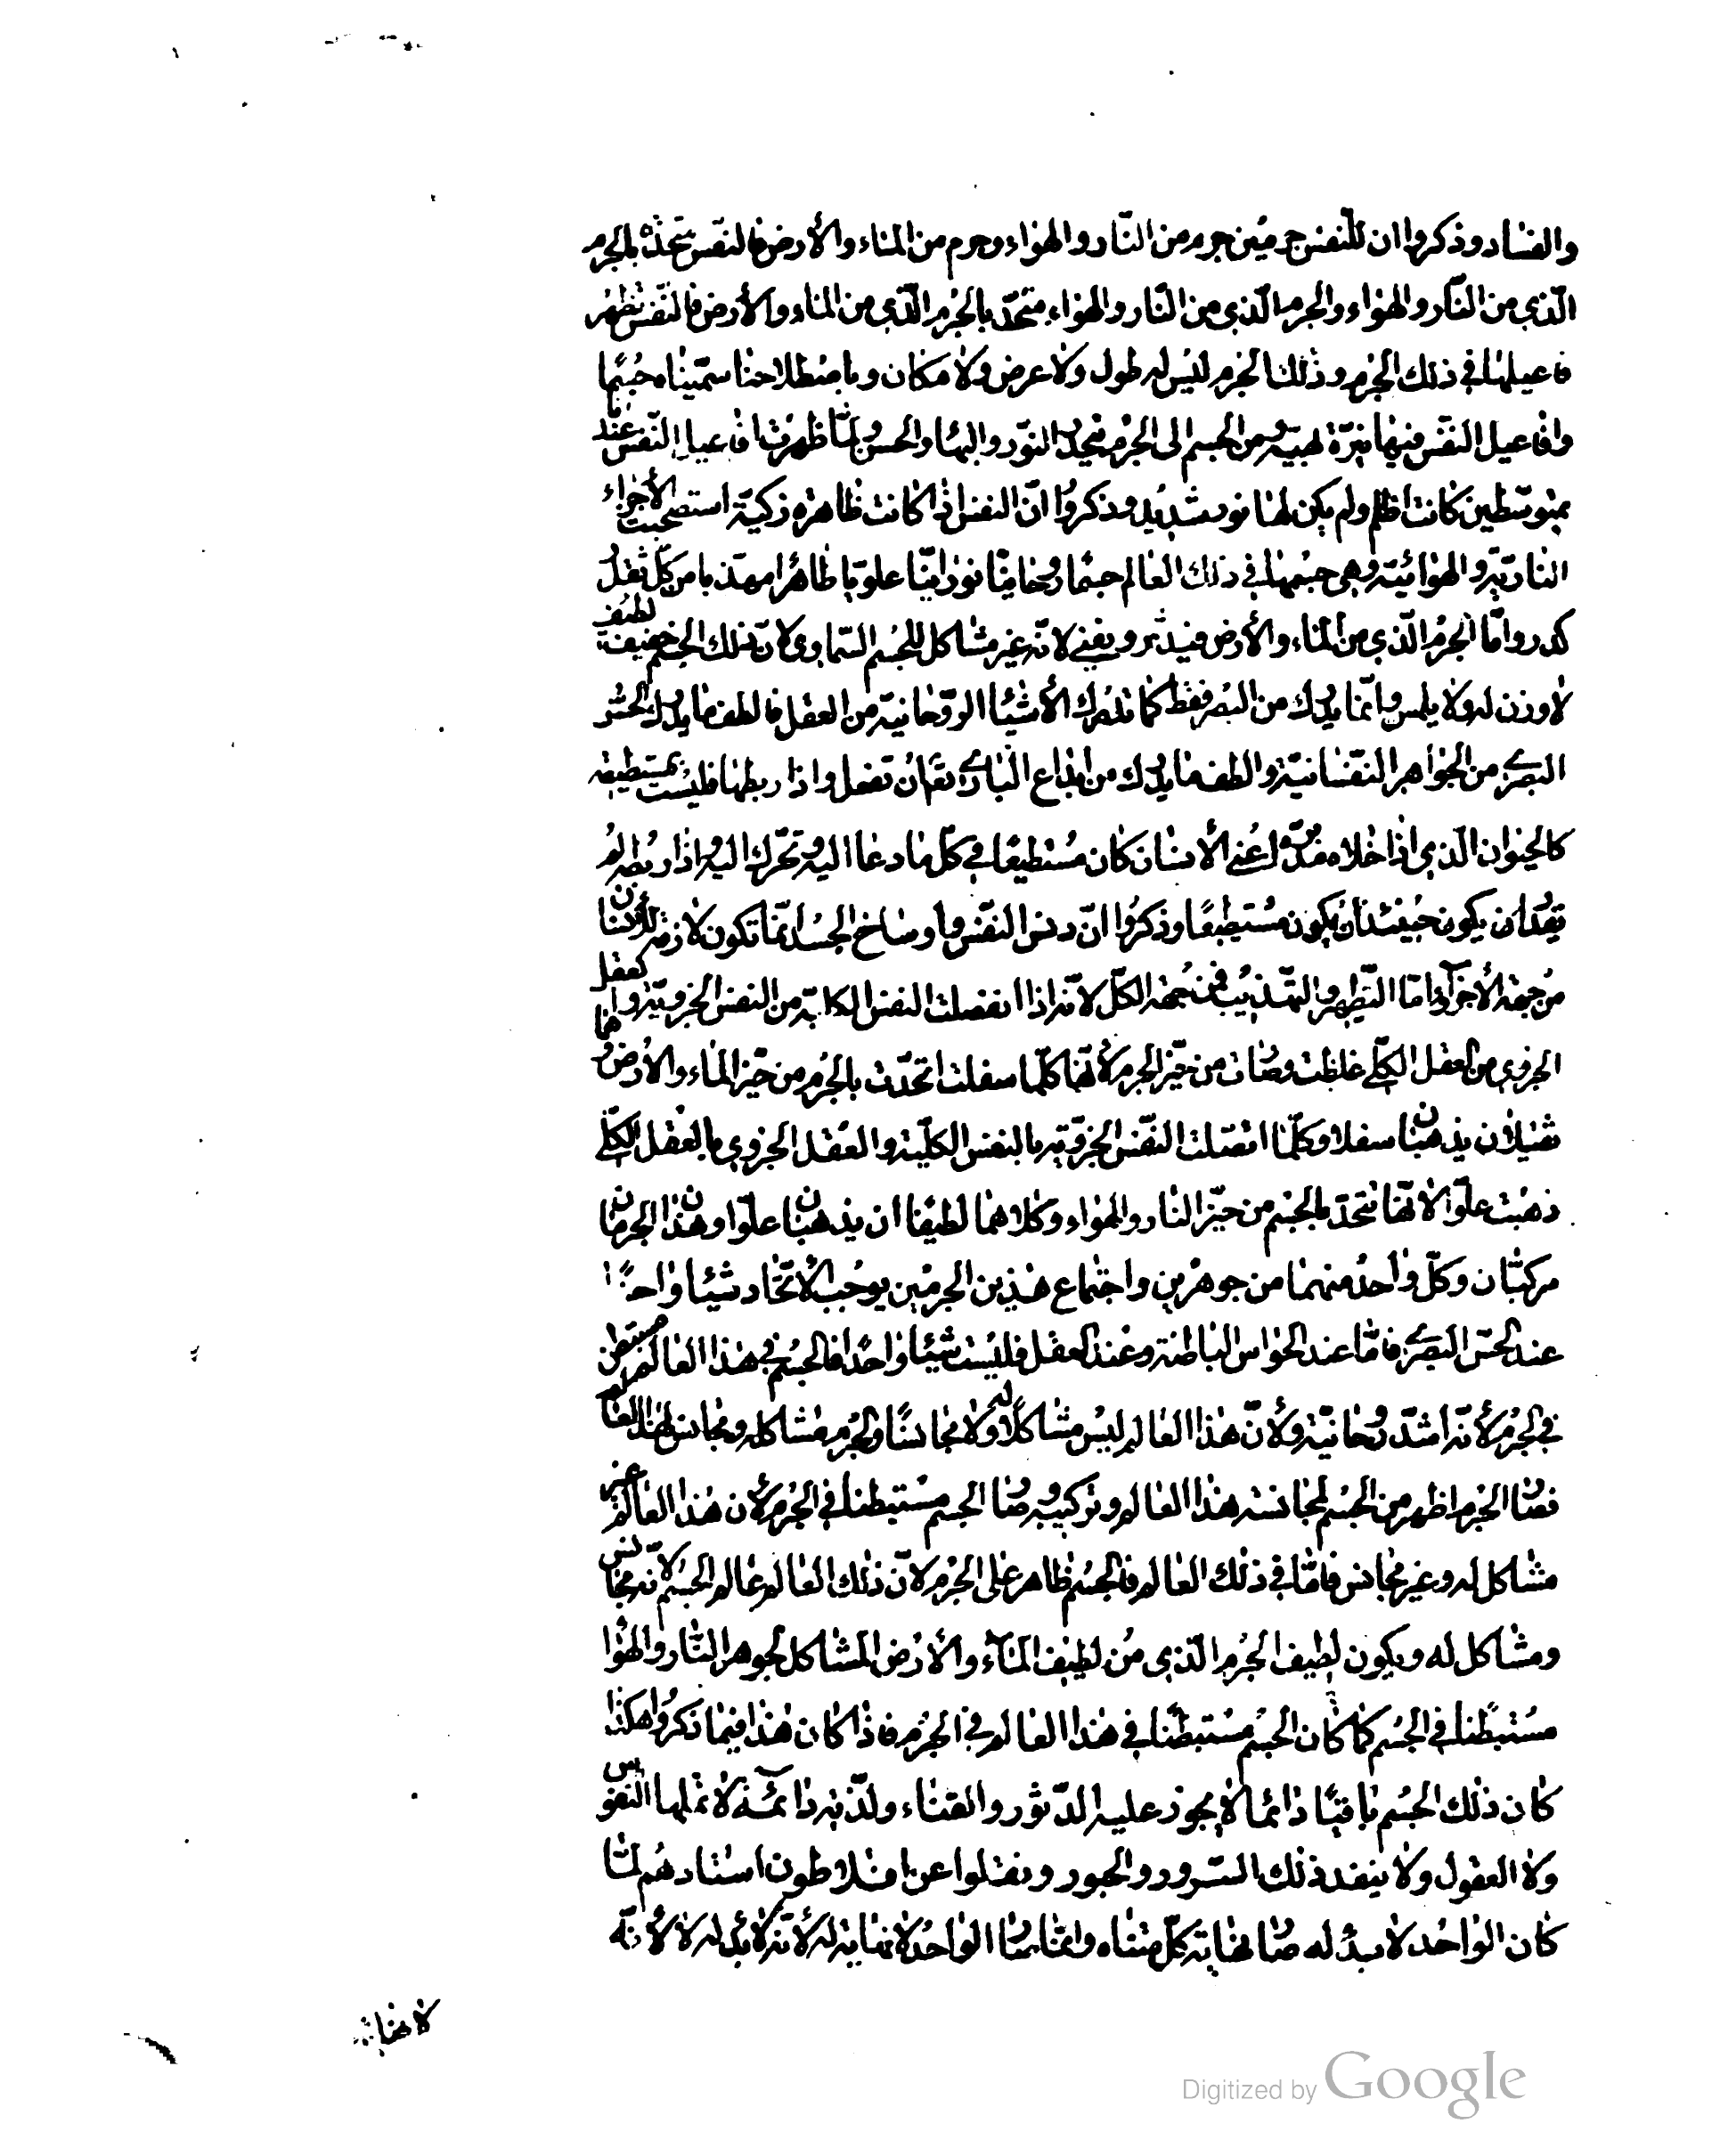 والفساد وذكروا ان للنفس جرمين جرم من النار والهواء وجرم من الماء والأرض فالنفس متحدة بالجرم
الذي من النار والهواء والجرم الذي من النار والهواء متحد بالجرم الذي من الماء والأرض فالنفس تظهر
افاعيلها في ذلك الجرم وذلك الجرم ليس له طول ولا عرض ولا مكان وباصطلاحنا سميناه جسما
وافاعيل النفس فيها نيرة بهية ومن الجسم الى الجرم ينحدر النور والبهاء والحسن ولما ظهرت افاعيل النفس عندنا
بمتوسطين كانت اظلم ولم يكن لها نور شديد وذكروا ان النفس اذا كانت ظاهرة زكية استصحبت الأجزاء
النارية والهوائية وهي جسمها في ذلك العالم جسما روحانيا نورانيا علويا طاهرا مهذبا من كل ثقل
كدر واما الجرم الذي من الماء والأرض فيدثر ويفنى لانه غير مشاكل للجسم السماوي لان ذلك الجسم خفيف لطيف
لا وزن له ولا يلمس وانما يدرك من البصر فقط كما تدرك الأشياء الروحانية من العقل فالطف ما يدرك الحس
البصري من الجواهر النفسانية والطف ما يدرك من ابداع الباري تعالى
كالحيوان الذي اذا خلاه مدبره اعني الأنسان كان مستطيعا في كل ما دعا اليه وتحرك اليه واذا ربطه لم
يقدر ان يكون حينئذ ان يكون مستطيعا وذكروا ان دنس النفس واوساخ الجسد انما تكون لازمة للأنسان
من جهة الأجزاء واما التطهير والتهذيب فمن جهة الكل لانه اذا انفصلت النفس الكلية من النفس الجزوية والعقل
الجزوي من العقل الكلي غلظت وصارت من حيز الجرم لأنها كلما سفلت اتحدت بالجرم من حيز الماء والأرض وهما
ثقيلان يذهبان سفلا وكلما اتصلت النفس الجزوية بالنفس الكلية والعقل الجزوي بالعقل الكلي
ذهبت علوا لانها تتحد بالجسم من حيز النار والهواء وكلاهما لطيفان يذهبان علوا وهذان الجرمان
مركبان وكل واحد منهما من جوهرين واجتماع هذين الجرمين يوجب الأتحاد شيئا واحدا
عند الحس البصري فاما عند الحواس الباطنة وعند العقل فليست شيئا واحدا فالجسم في هذا العالم مستبطن
في الجرم لأنه اشد روحانية ولأن هذا العالم ليس مشاكلا له ولا مجانسا والجرم مشاكل ومجانس لهذا العالم
فصار الجرم اظهر من الجسم لمجانسته هذا العالم وتركيبه وصار الجسم مستبطنا في الجرم لأن هذا العالم غير
مشاكل له وغير مجانس فاما في ذلك العالم فالجسم ظاهر على الجرم لان ذلك العالم عالم الجسم لأنه مجانس
ومشاكل له ويكون لطيف الجرم الذي من لطيف الماء والأرض المشاكل لجوهر النار والهواء
مستبطنا في الجسم كما كان الجسم مستبطنا في هذا العالم في الجرم فاذا كان هذا فيما ذكروا هكذا
كان ذلك الجسم باقيا دائما لا يجوز عليه الدثور والفناء ولذته دائمة لا تملها النفوس
ولا العقول ولا ينفد ذلك السرور والحبور ونقلوا عن افلاطون استادهم لما
كان الواحد لا بدء له صار نهاية كل متناه وانما صار الواحد لا نهاية له لأنه لا بدء له لا لأنه
لا نهاية
Digitized by Google